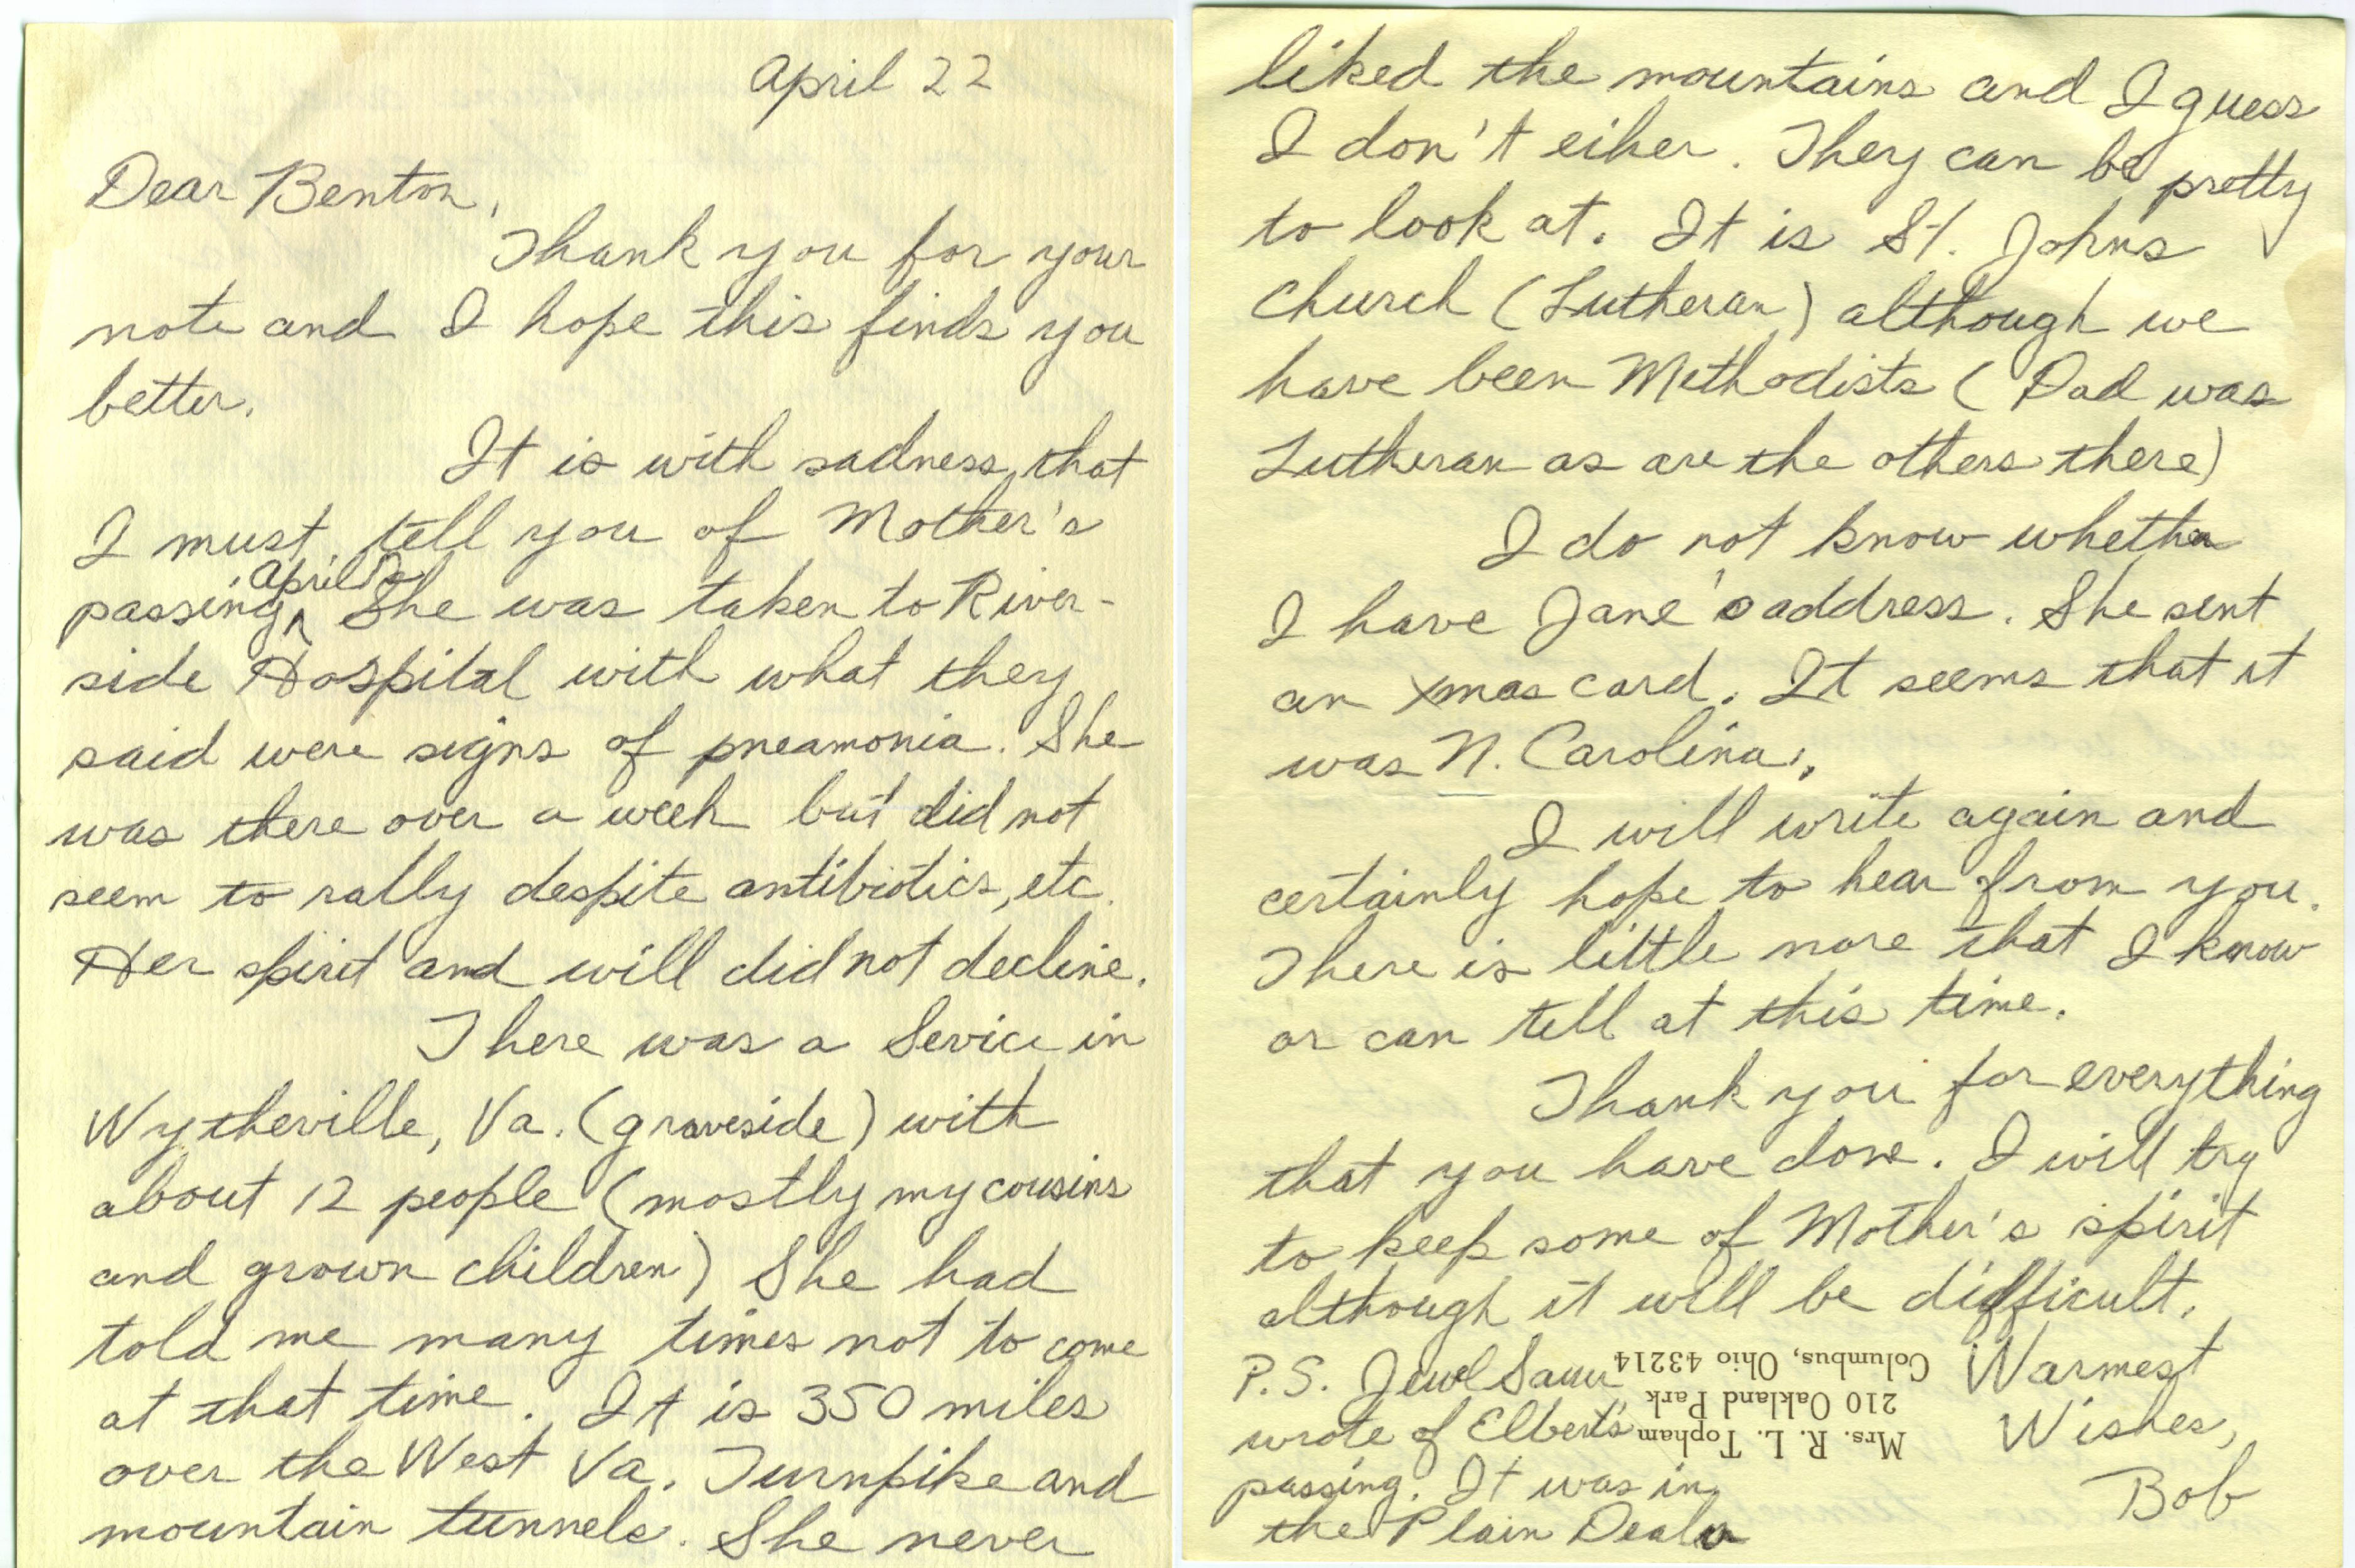 April 22
Dear Benton,
Thank you for your
note and I hope this finds you
better.
It is with sadness, that
I must, tell you of Mother's
April
passing. She was taken to River-
side Hospital with what they
said were signs of pneamonia. She
was there over a week but did not
seem to rally despite antibiotics, etc.
Her spirit and will did not decline.
There was a Sevice in
Wytheville, Va. (graveside) with
about 12 people (mostly my cousins
and grown children) She had
told me many times not to come
at that time. It is 350 miles
over the West Va. Turnpike and
mountain tunnels. She never
liked the mountains and I guess
I don't eiher. They can be pretty
to look at. It is St. Johns
Church (Lutheran) although we
have been Methodists (Dad was
Lutheran as are the others there)
I do not know whether
I have Jane's address. She sent
an Xmas card. It seems that it
was N. Carolina.
I will write again and
certainly hope to hear from you.
There is little more that I know
or can tell at this time.
Thank you for everything
that you have done. I will try
to keep some of Mother's spirit
although it will be difficult.
Warmest
Wishes,
Bob
P.S. Jewel
wrote of Elbert's
passing. It was in
the Plain Dealer
Mrs. R. L. Topham
210 Oakland Park
Columbus, Ohio 43214